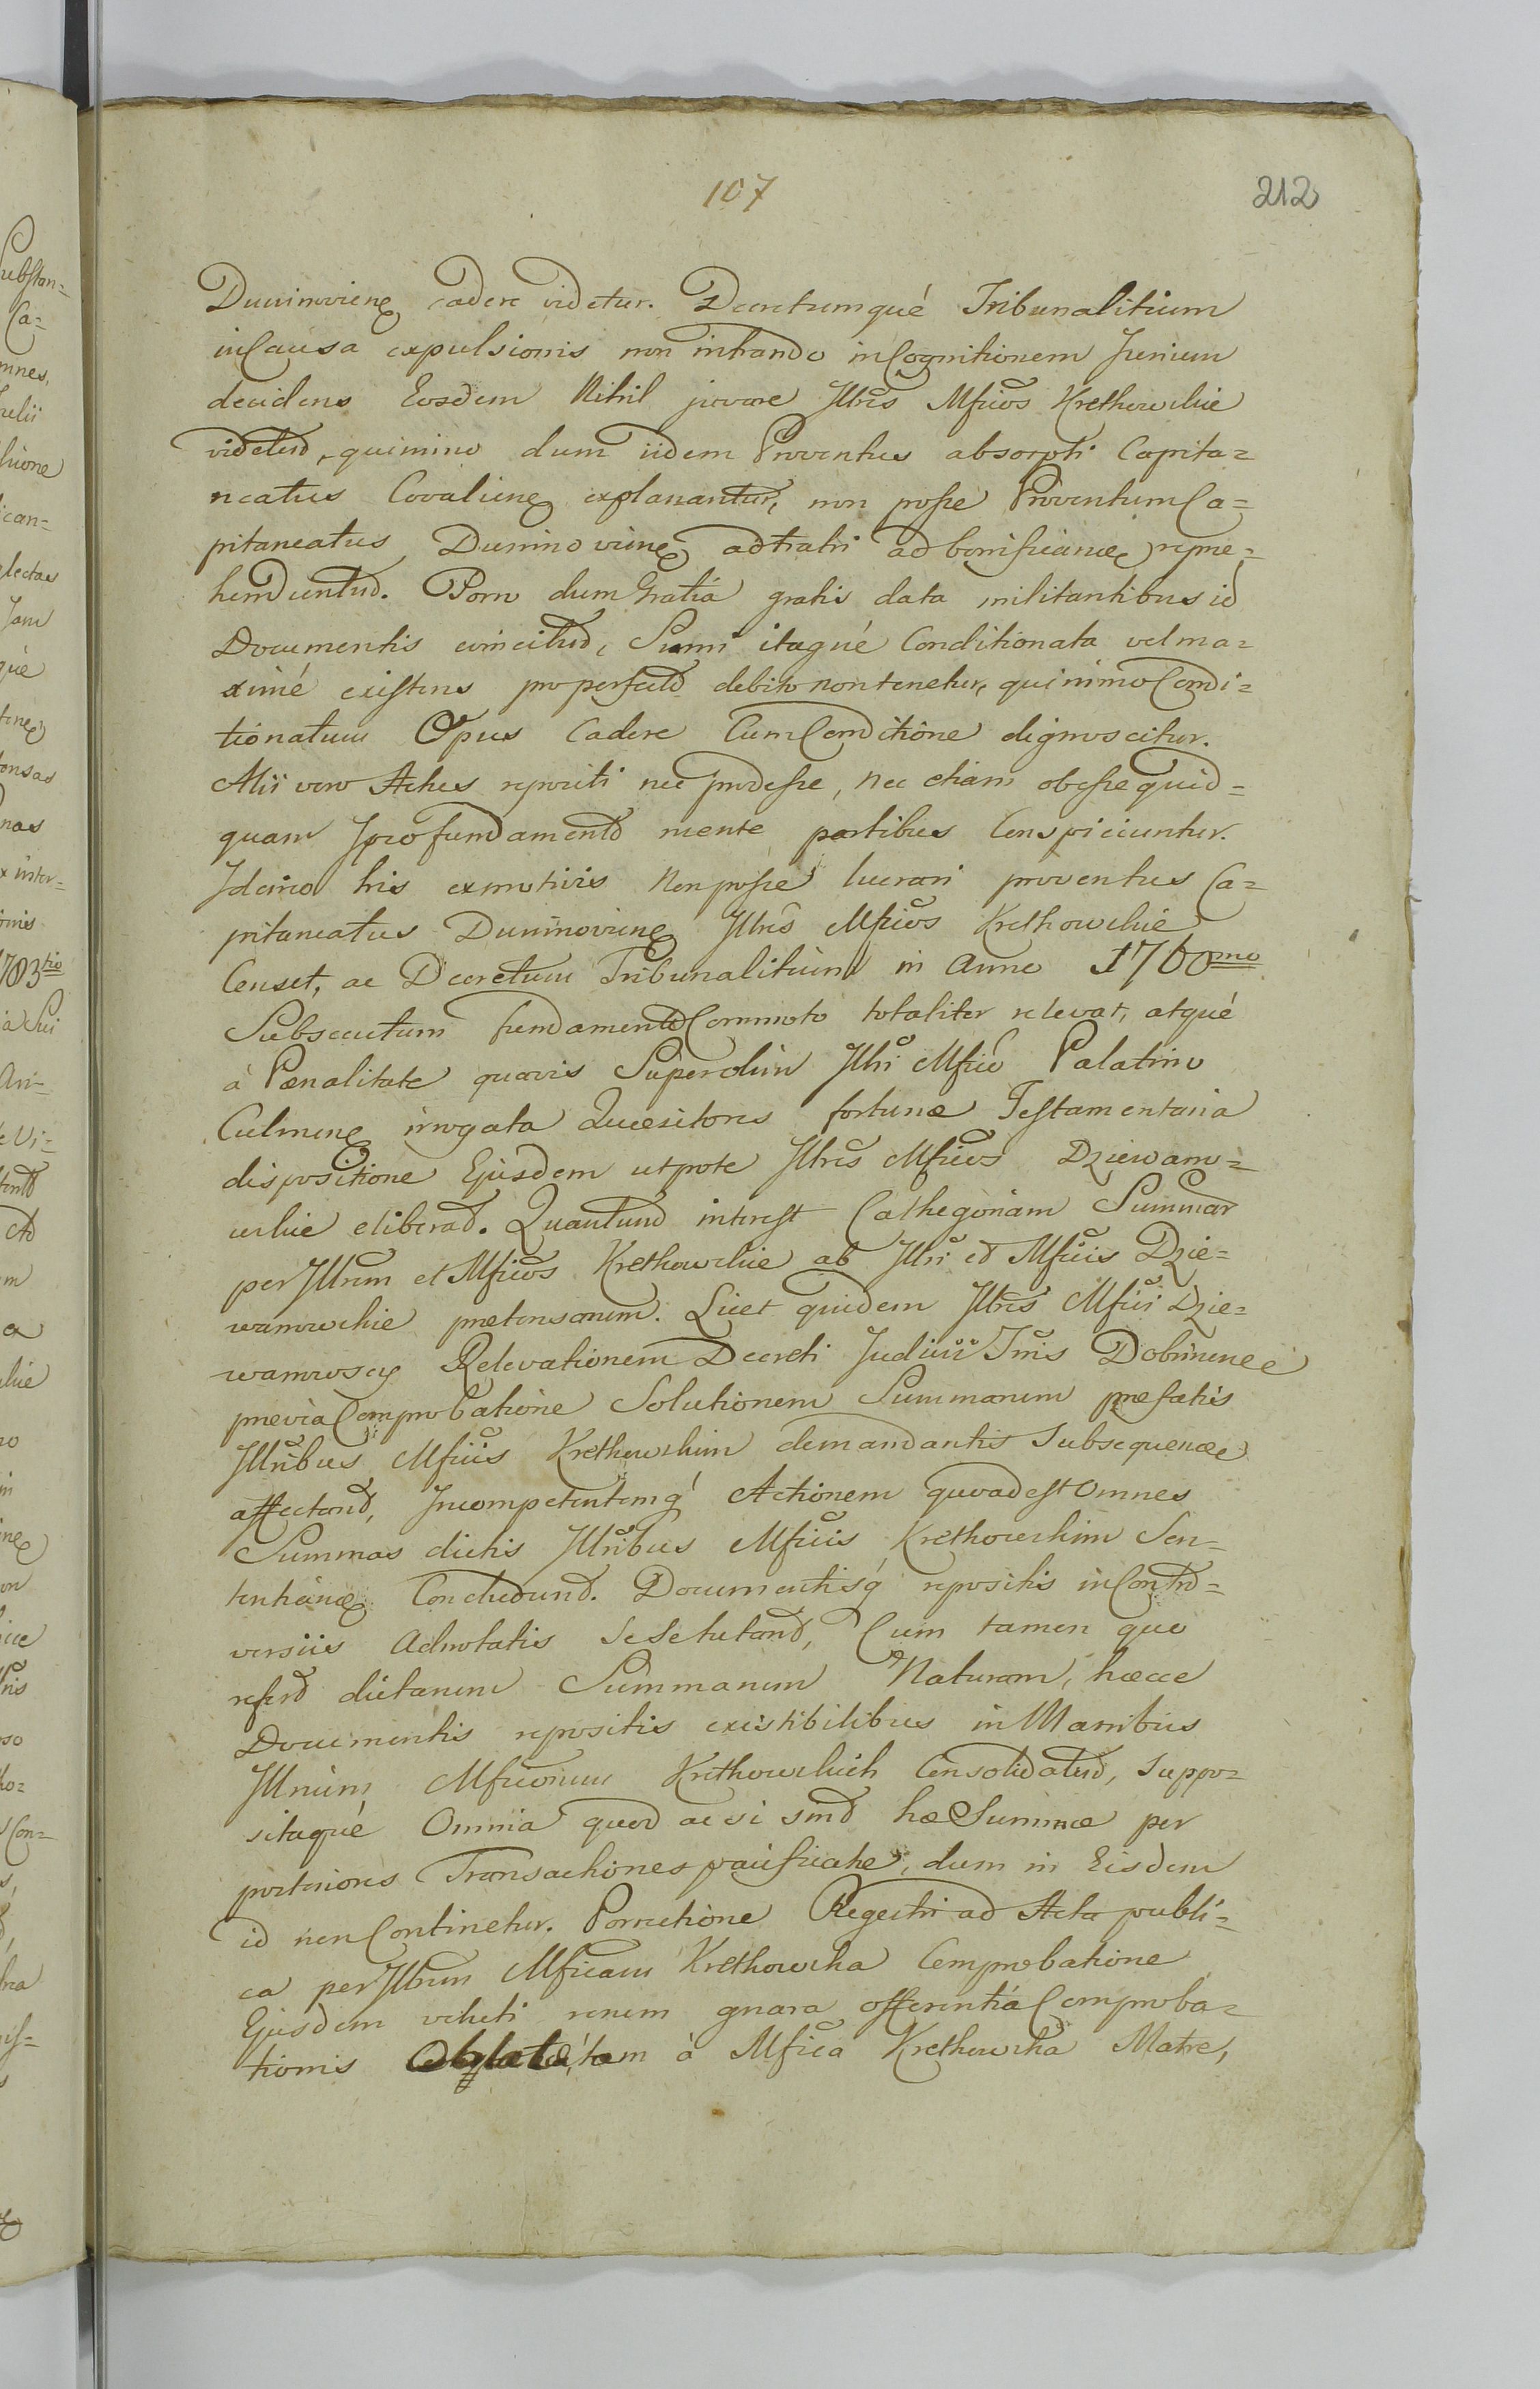 107
212
Duninovien cadere videtur. Decretumqué Tribunalitium
in Causa expulsionis non intrando in Cognitionem Jurium
decidens Eosdem Nihil juvare Jllres Mficos Krethowskie
videtud, quinimo dum iidem Proventus absorpti Capita=
neatus Covaliens explanantur, non posse Proventum Ca=
pitaneatus Duninovien adtrahi ad bonificane repre=
henduntud. Porro dum Gratia gratis data militantibus id
Documentis evincitud, itaqué Conditionata vel ma=
ximé existens pro perfectd debito non tenetur, quinimo Condi=
tionatum Opus Cadere Cum Conditione dignoscitur.
Alii vero Actus repositi nec prodesse, nec etiam obesse quid=
quam pro fundamentd mente partibus Conspiciuntur.
Jdcirco his ex motivis Non posse lucrari proventus Ca=
pitaneatus Duninovien Jllres Mficos Krethowskie
Censet, ac Decretum Tribunalitium in Anno 1760mo
Subsecutum fundamentd Commoto totaliter relevat, atqué
à Pœnalitate quavis Super olim Jllri Mfico Palatino
Culmen irrogata Quæsitores fortunæ Testamentaria
dispositione Ejusdem utpote Jllres Mficos Dziewano=
wskie eliberad. Quantund interest Cathegoriam Summar
per Jllrem et Mficos Krethowskie ab Jllri et Mficis Dzie=
wanowskie prætensarum. Licet quidem Jllres Mfici Dzie=
wanowscy Relevationem Decreti Judicii Tris Dobrinense
prævia Comprobatione Solutionem Summarum præfatis
Jllribus Mficis Krethowskim demandantis Subsequenæ
affectand, Jncompetentemq' Actionem quoad est Omnes
Summas dictis Jllribus Mficis Krethowskim Sen=
tentianæ Concludund. Documentisq' repositis in Contrd=
versiis Adnotatis sese tutand, Cum tamen quo
referd dictarum Summarum Naturam, hæcce
Documentis repositis existibilibus in Manibus
Jllrium Mficorum Krethowskich Consolidatud, suppo=
sitaqué Omnia quod ac si sind hæ Summæ per
posteriores Transactiones pacificatæ, dum in Eisdem
id non Continetur. Porrectione Regestri ad Acta publi=
ca per Jllrem Mficam Krethowska Comprobatione
Ejusdem veluti rerum gnara offerentia Comproba=
tionis tam à Mfica Krethowska Matre,